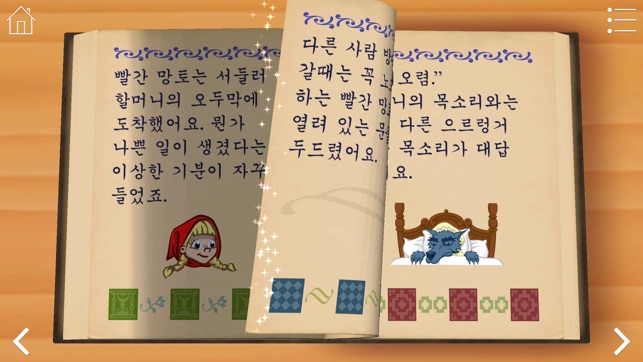 빨간 망토는 서둘러
할머니의 오두막에
도착했어요. 뭔가
나쁜 일이 생겼다는
이상한 기분이 자꾸
들었죠.
다른 사람
갈때는 꼭
하는 빨간
열려 있는
두드렸어요.
오렴.”
니의 목소리와는
다른 으르렁거
목소리가 대답
요.